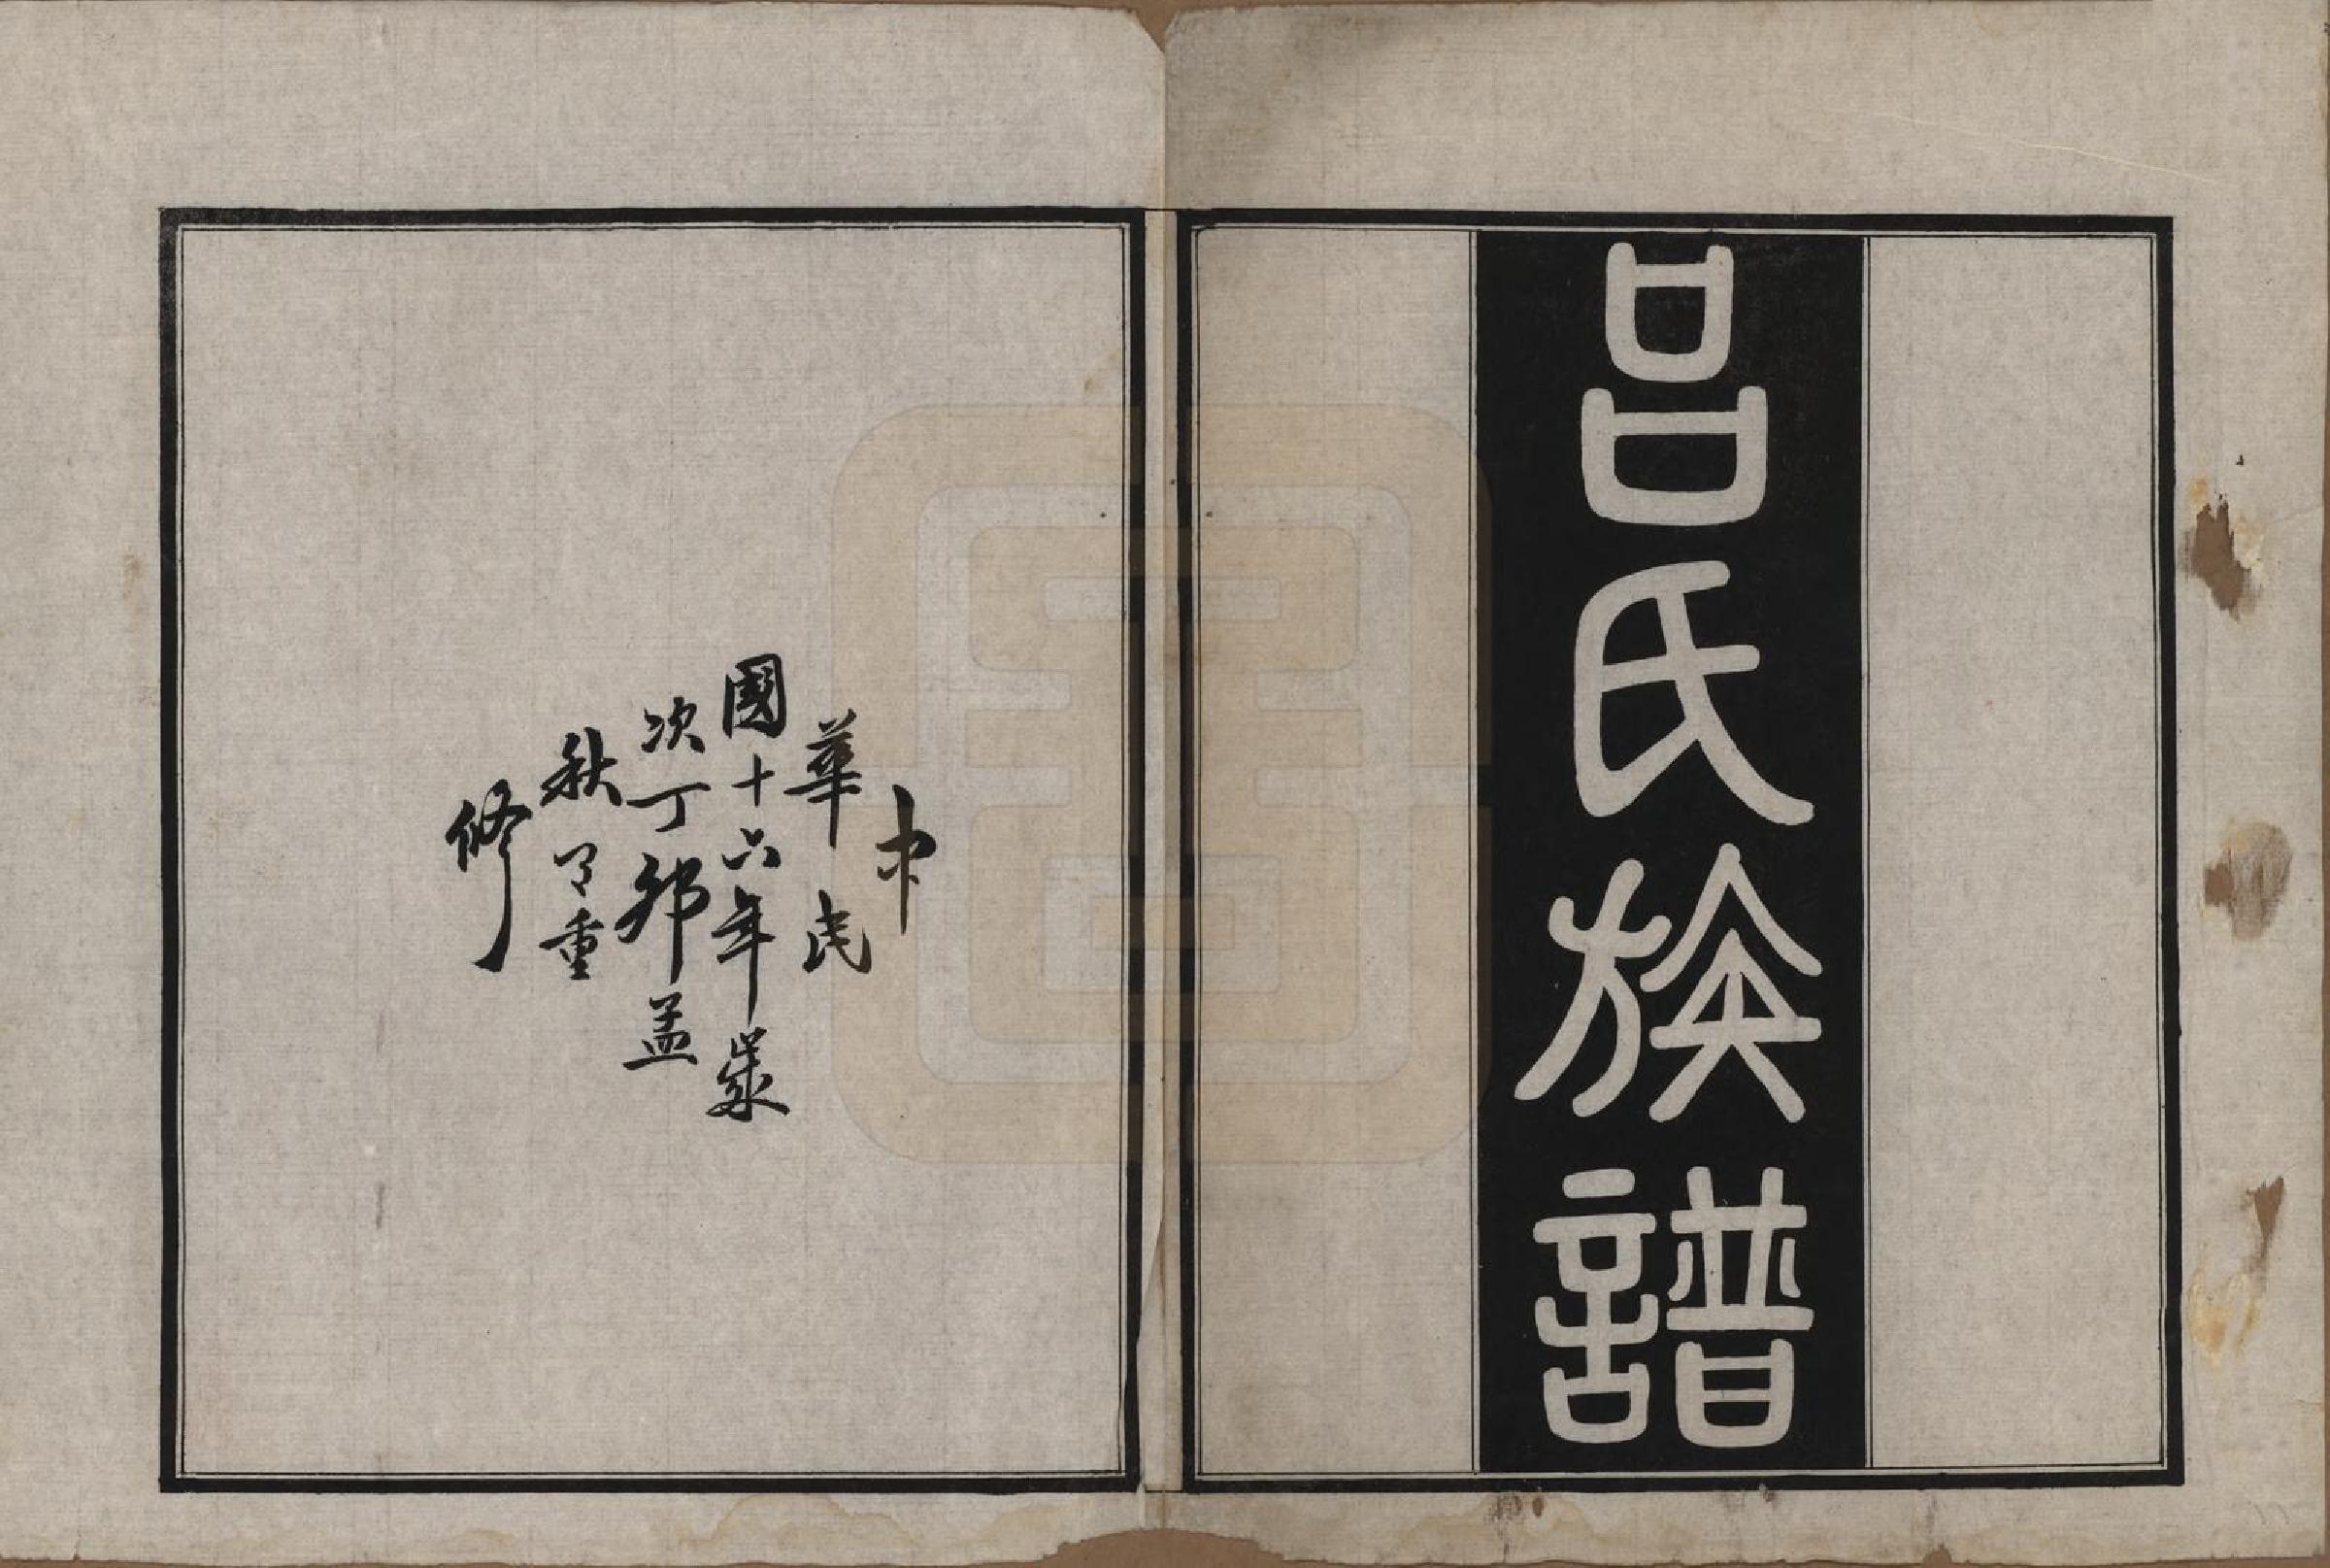 呂氏族譜
中
華民
國十六年嵗
次丁卯孟
秋月重
修